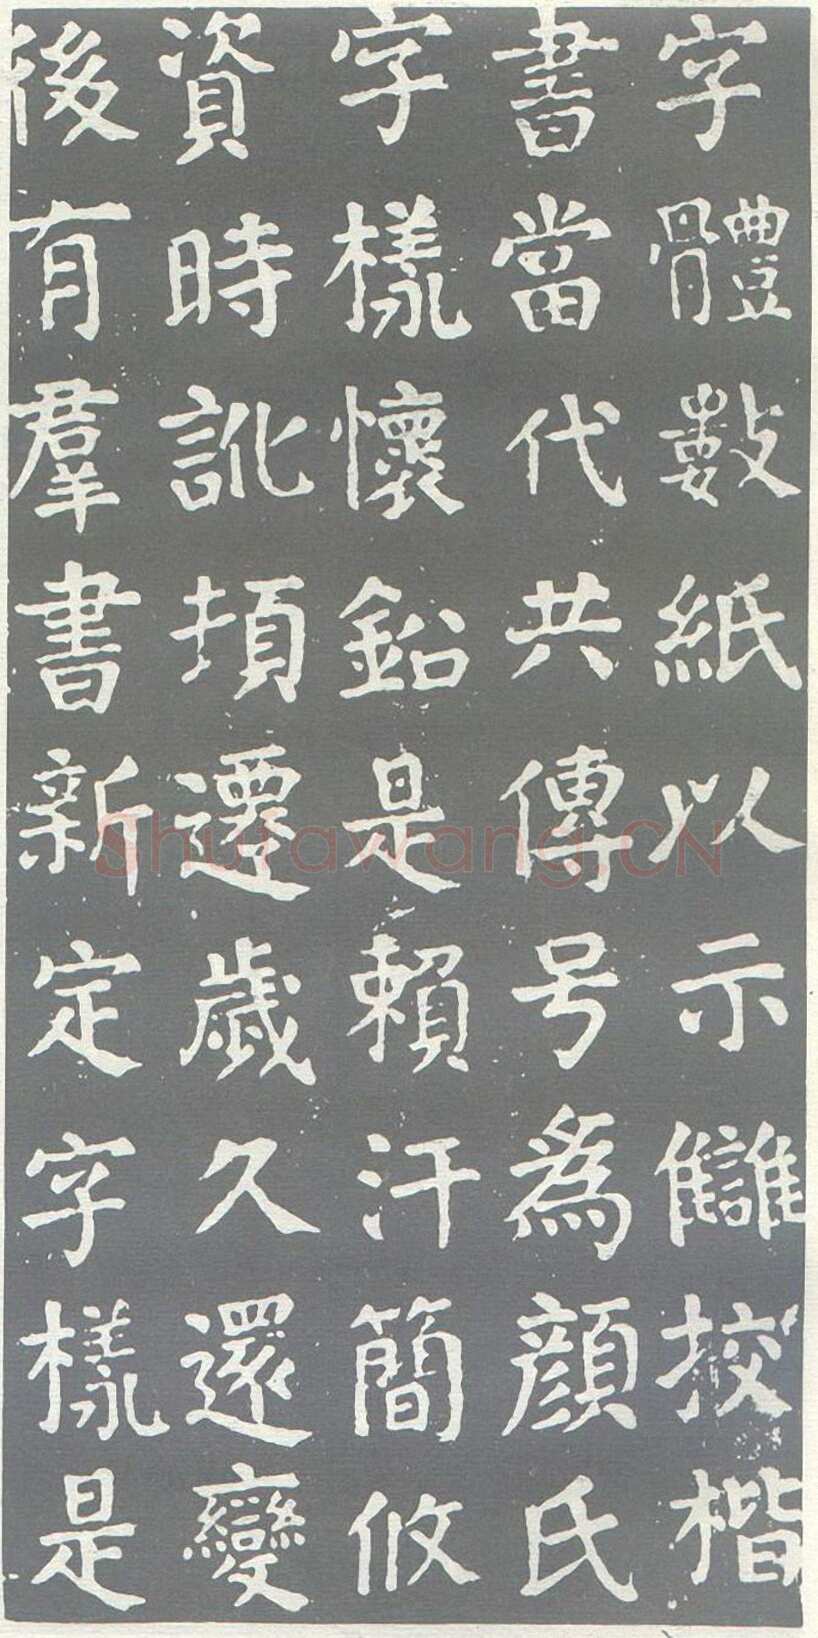 字體數紙以示讎挍楷
書當代共傳号爲顔氏
字樣懷鈆是賴汗簡攸
資時訛頓遷歲久還變
後有羣書新定字樣是
Shufawang.CN